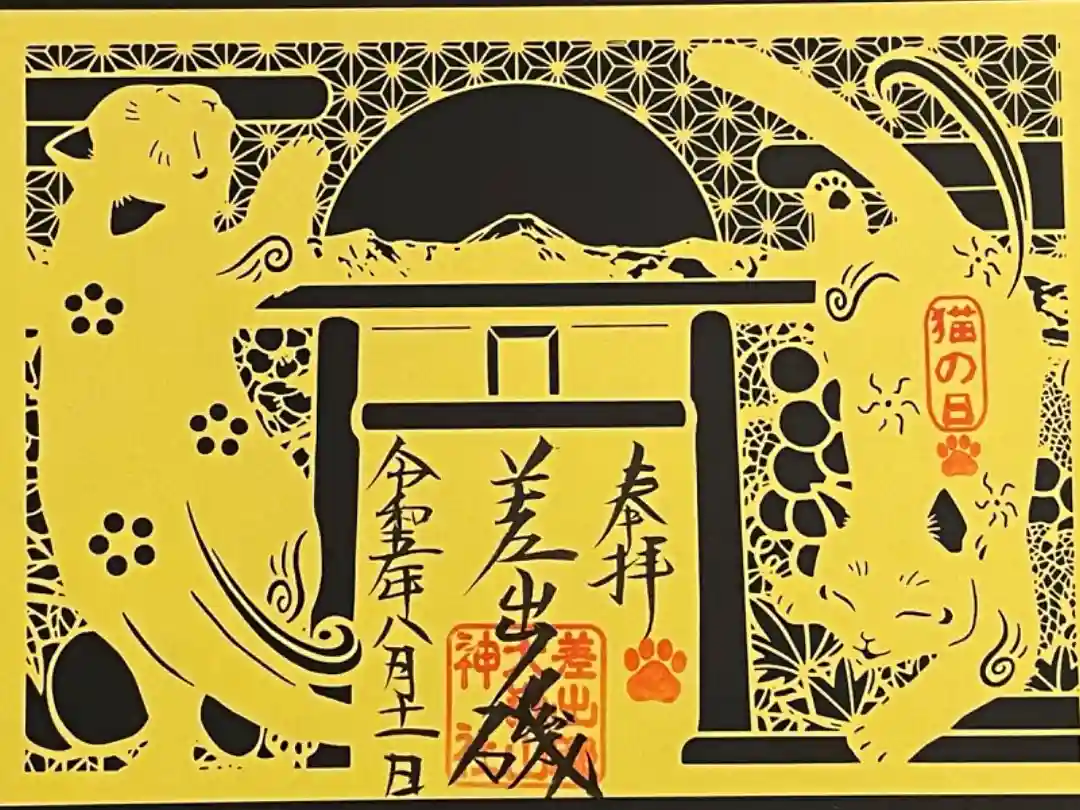 奉拝
差出磯
令和五年八月十一日
猫の日
差出磯
大嶽山
神社